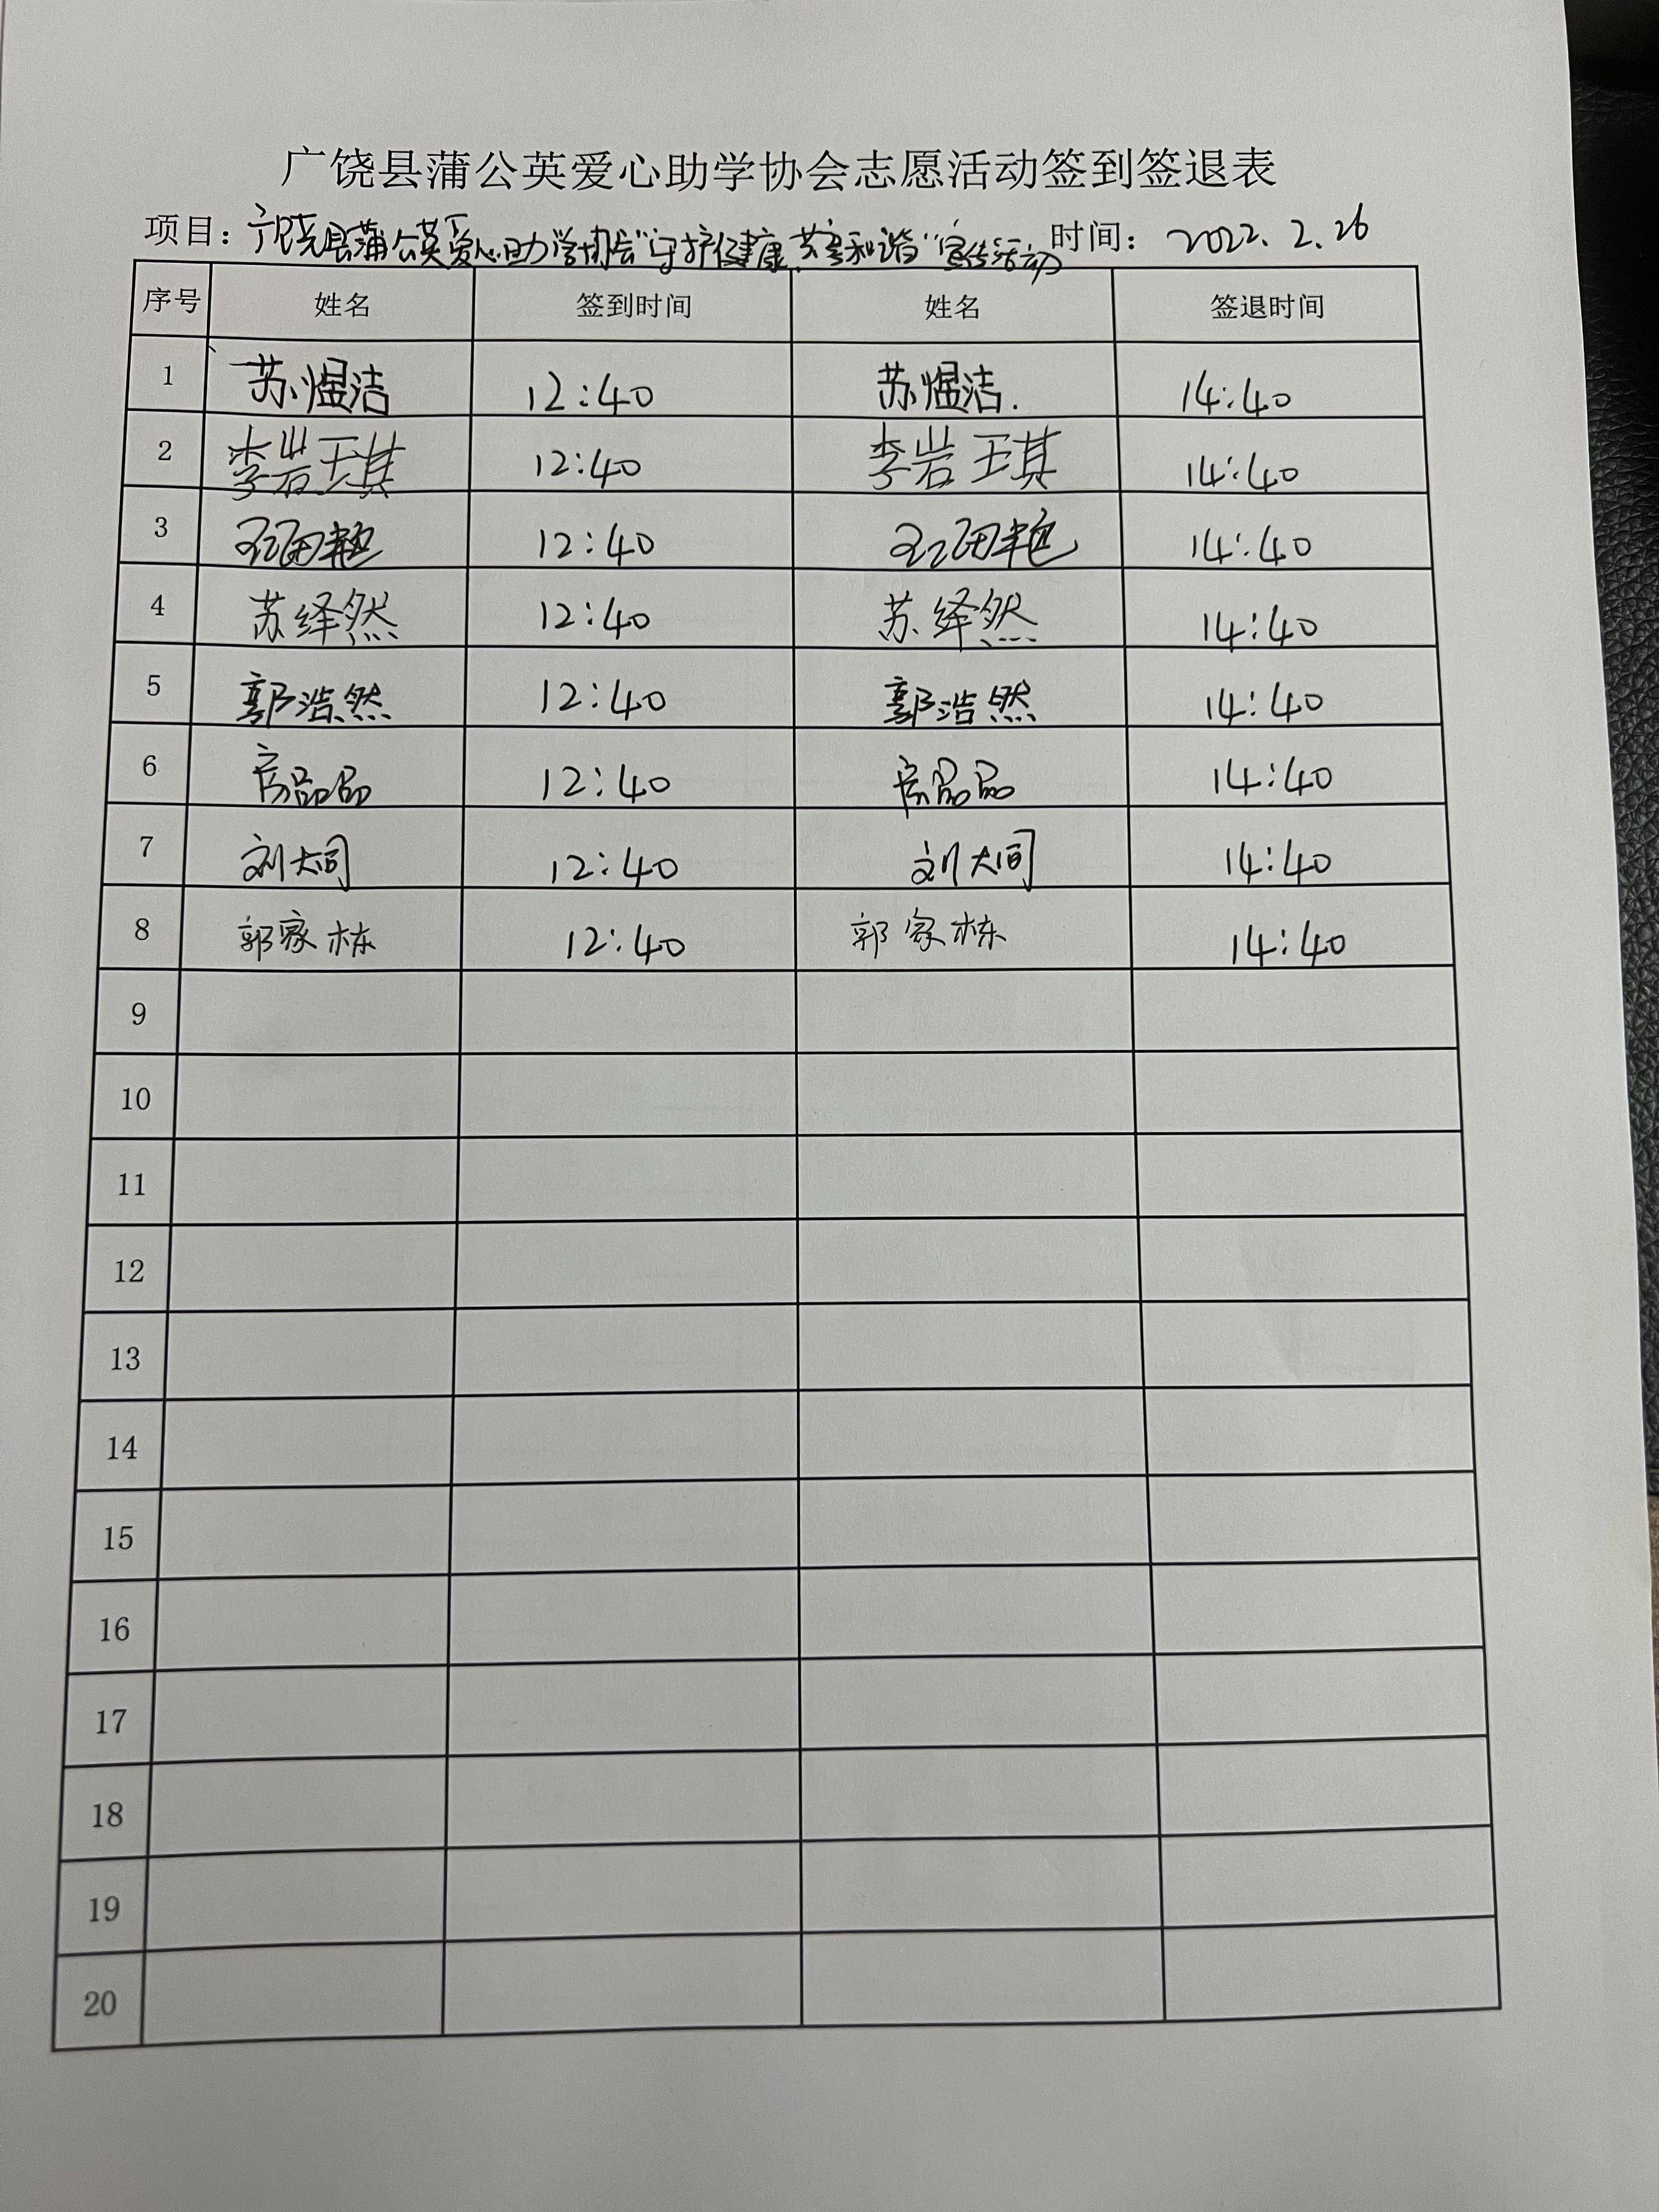 广饶县蒲公英爱心助学协会志愿活动签到签退表
项目：广饶县蒲公英爱心助学协会“守护健康，共享和谐”宣传活动 时间：2022.2.26
序号 姓名 签到时间 姓名 签退时间
1 苏煜洁 12:40 苏煜洁. 14:40
2 李岩琪 12:40 李岩琪 14:40
3 12:40 14:40
4 苏绎然 12:40 苏绎然 14:40
5 郭浩然 12:40 郭浩然 14:40
6 房品品 12:40 房品品 14:40
7 刘大同 12:40 刘大同 14:40
8 郭家栋 12:40 郭家栋 14:40
9
10
11
12
13
14
15
16
17
18
19
20